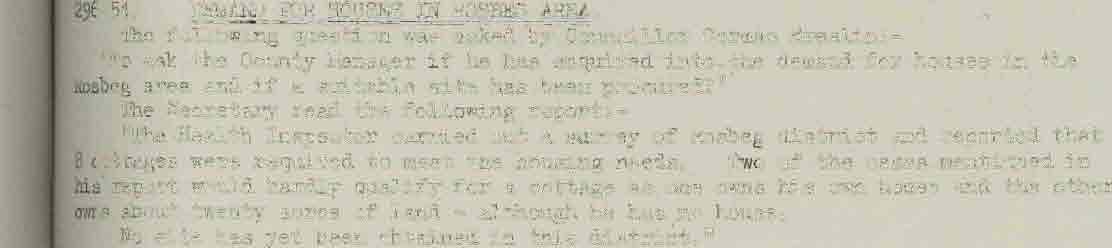 296/51. DEMAND FOR HOUSES IN ROSBEG AREA
The following question was asked by Councillor Cormac Breslin:-
"To ask the County Manager if he has enquired into the demand for houses in the
Rosbeg area and if a suitable site has been procured?"
The Secretary read the following report:-
"The Health Inspector carried out a survey of Rosbeg district and reported that
8 cottages were required to meet the housing needs. Two of the cases mentioned in
his report would hardly qualify for a cottage as one owns his own house and the other
owns about twenty acres of land - although he has no house.
No site has yet been obtained in this district."